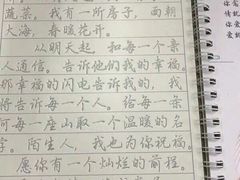 蔬菜，我有一所房子，面朝
大海，春暖花开。
从明天起，和每一个亲
人通信。告诉他们我的幸福。
那幸福的闪电告诉我的，我
将告诉每一个人。给每一条
河每一座山取一个温暖的名
字。陌生人，我也为你祝福。
愿你有一个灿烂的前程。
你
情
爱
爱